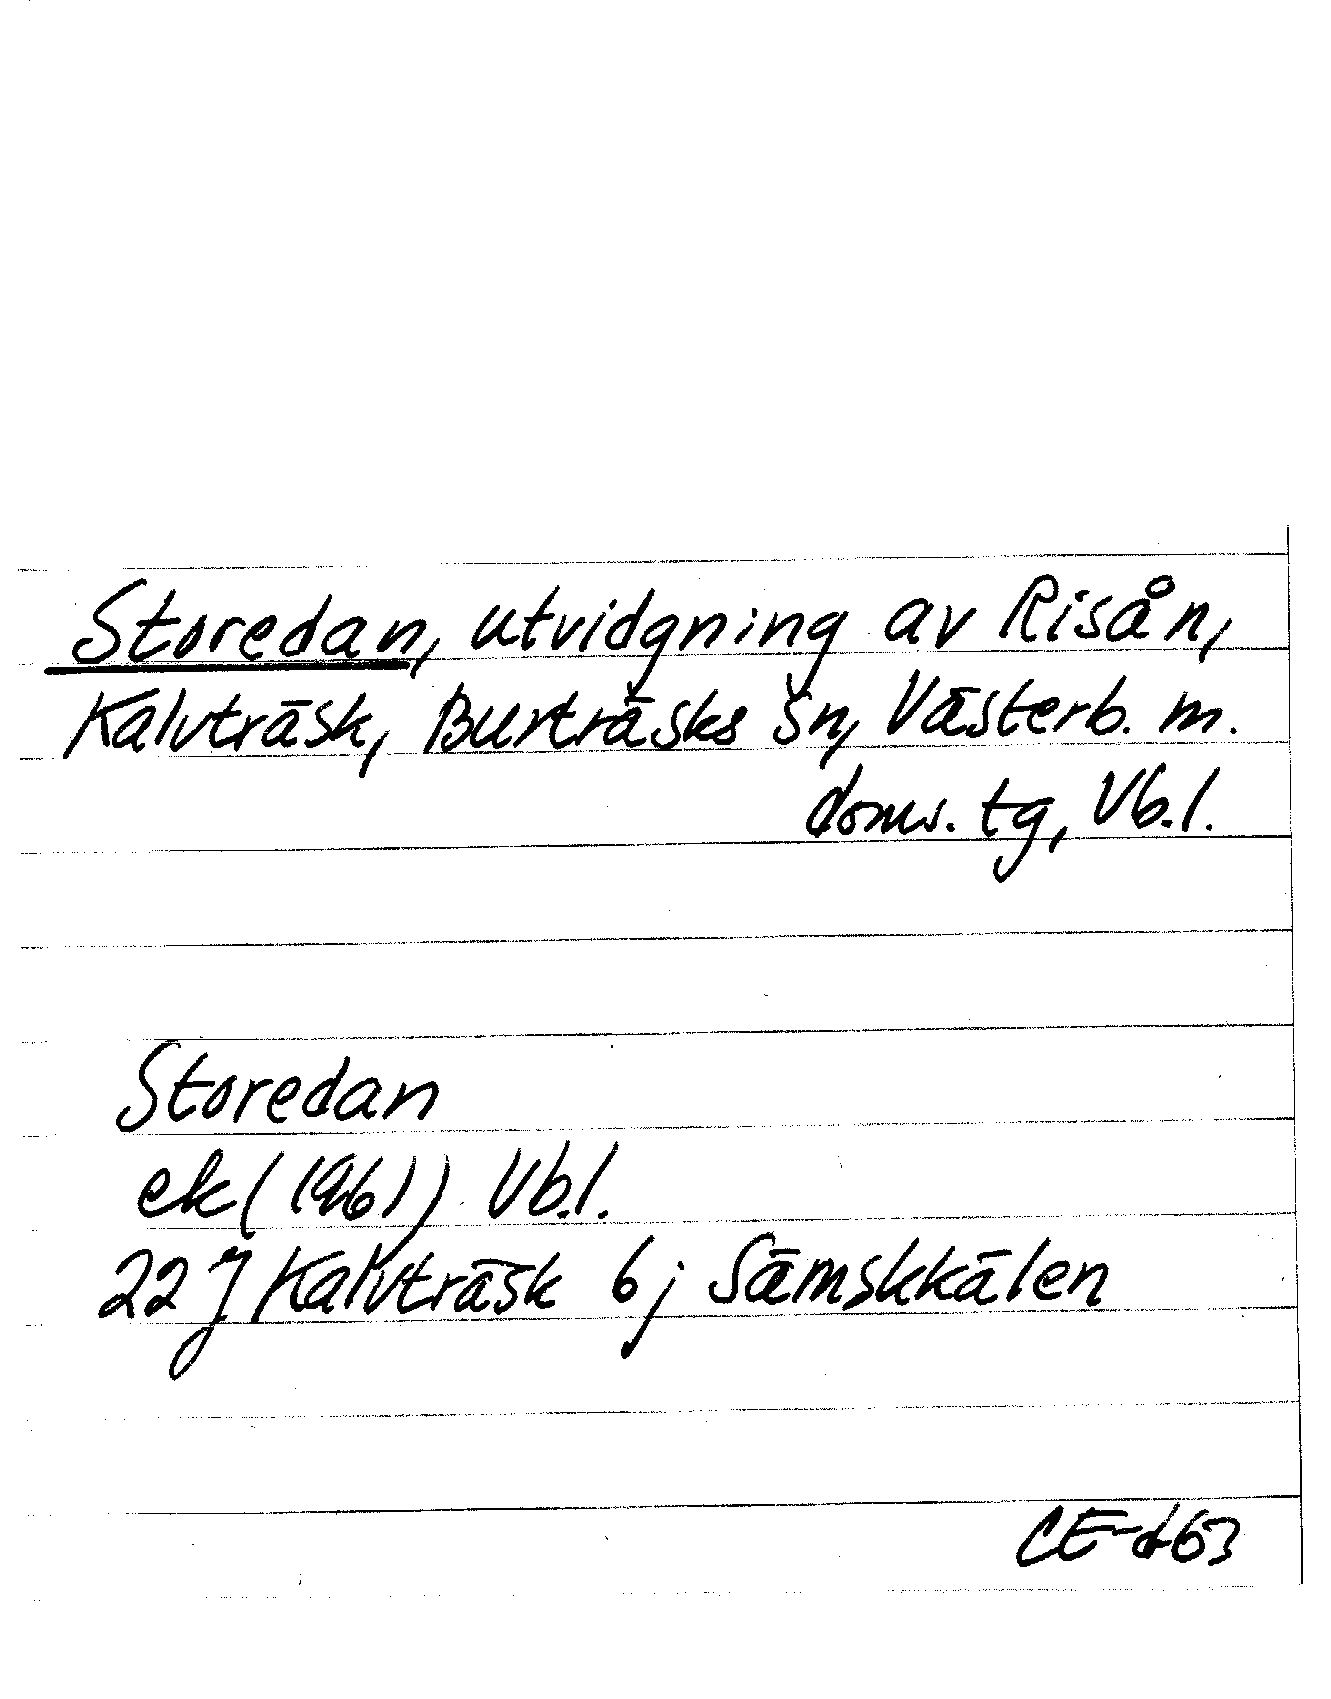 Storedan, utvidgning av Risån,
Kalvträsk, Burträsks sn, Västerb. m.
doms. tg, Vb.l.
Storedan
ek (1961) Vb.l.
22 J Kalvträsk 6 j Sämskkälen
CE-d63